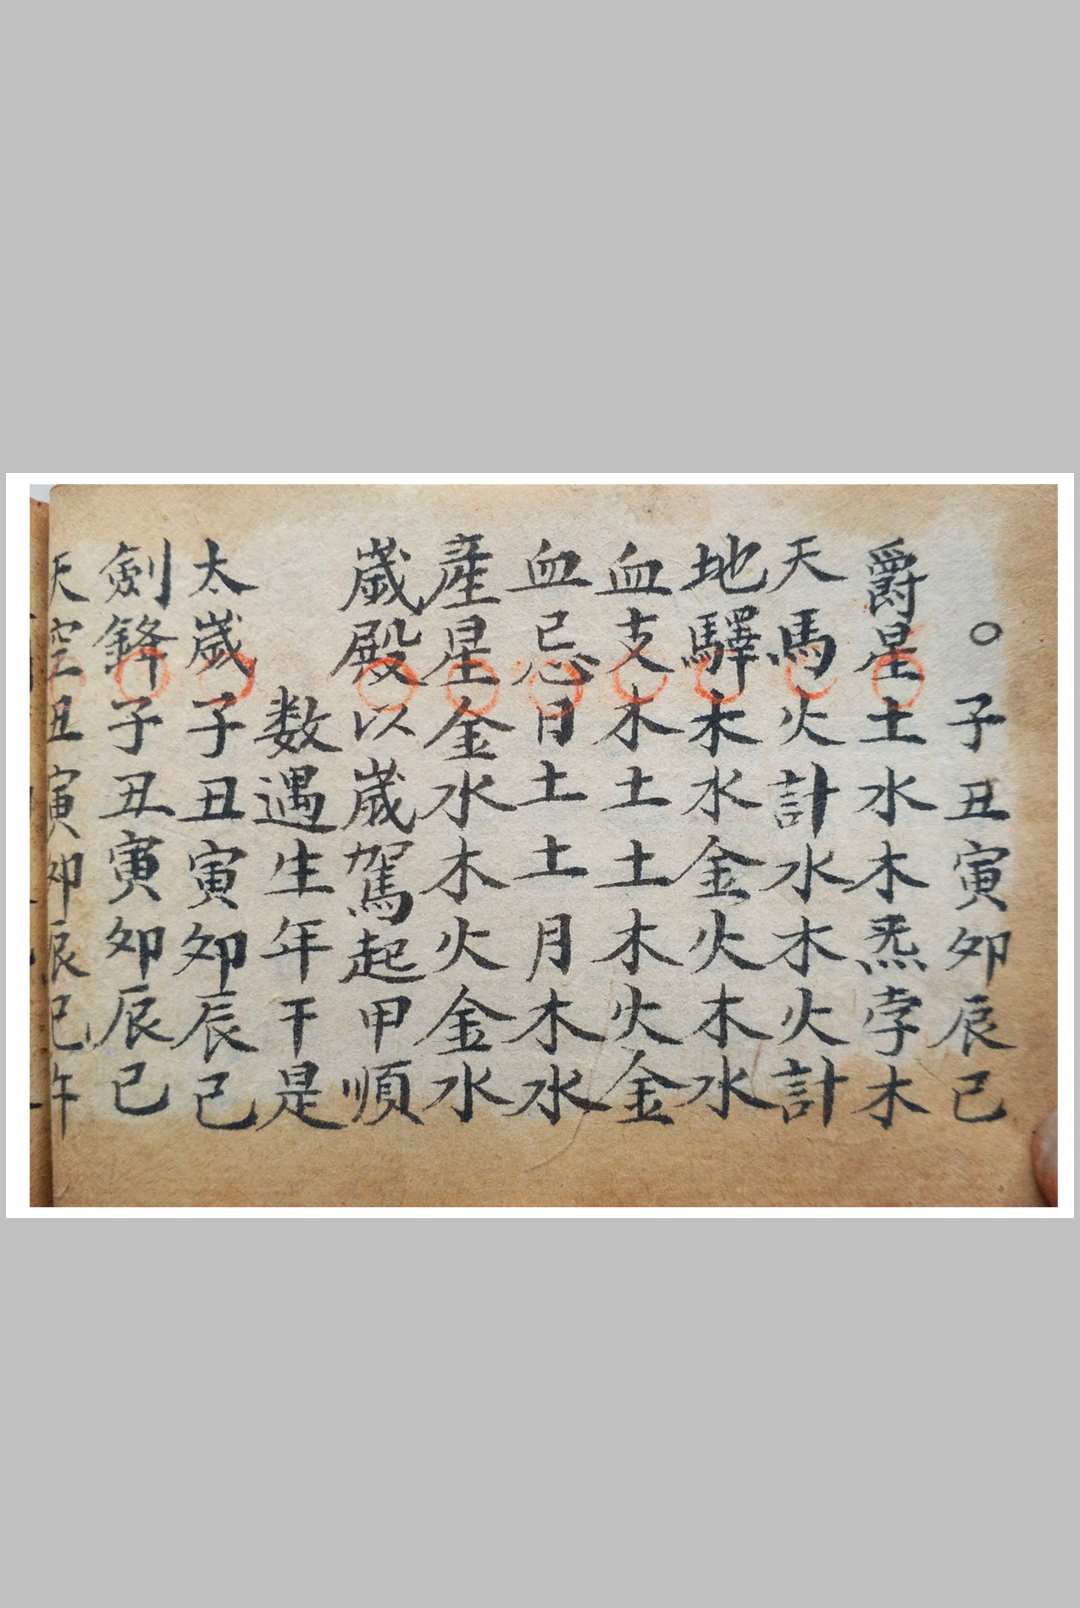 ○子丑寅卯辰巳
爵星土水木炁孛木
天馬火計水木火計
地驛木水金火木水
血支木土土木火金
血忌日土土月木水
産星金水木火金水
歲殿以歲駕起甲順
数遇生年干是
太歲子丑寅卯辰巳
劍鋒子丑寅卯辰巳
天空丑寅卯辰巳午